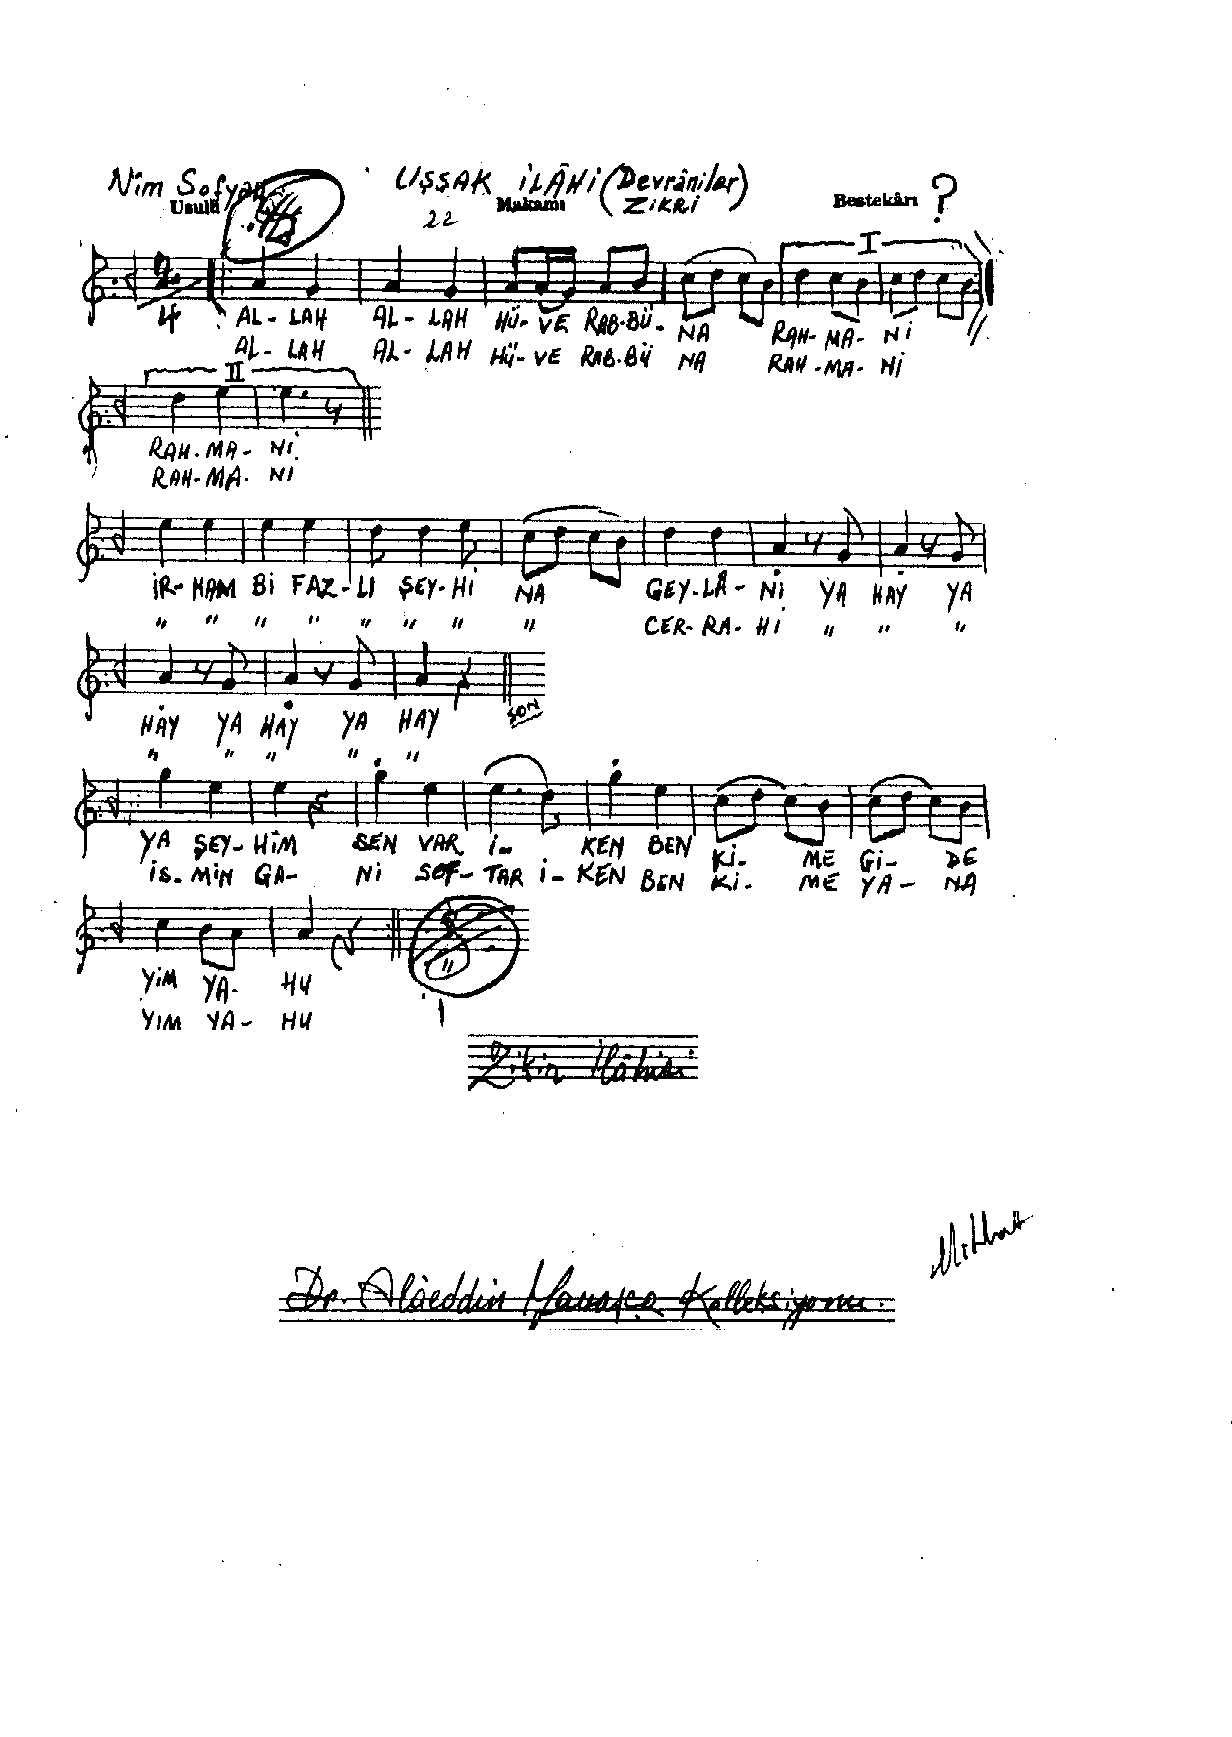 Nîm Sofyan UŞŞAK İLÂHİ (Devrânîler)
Usulü 22 Makamı ZİKRİ Bestekârı ?
I
2
4
AL- LAH AL- LAH HÜ- VE RAB-BÜ- NA RAH- MA- Nİ
AL- LAH AL- LAH HÜ- VE RAB-BÜ NA RAH-MA- Nİ
II
RAH-MA- Nİ
RAH-MA- NI
İR- HAM Bİ FAZ- LI ŞEY-Hİ NA GEY-LÂ- Nİ YA HAY YA
" " " " " " " " CER- RA- Hİ " " "
HAY YA HAY YA HAY
SON
" " " " "
YA ŞEY- HİM SEN VAR İ- KEN BEN Kİ- ME Gİ- DE
İS- MİN GA- Nİ SOF- TAR İ- KEN BEN Kİ- ME YA- NA
YİM YA- HU
YIM YA- HU
Zikir İlâhisi
Dr. Alâeddin Yavaşca Kolleksiyonu